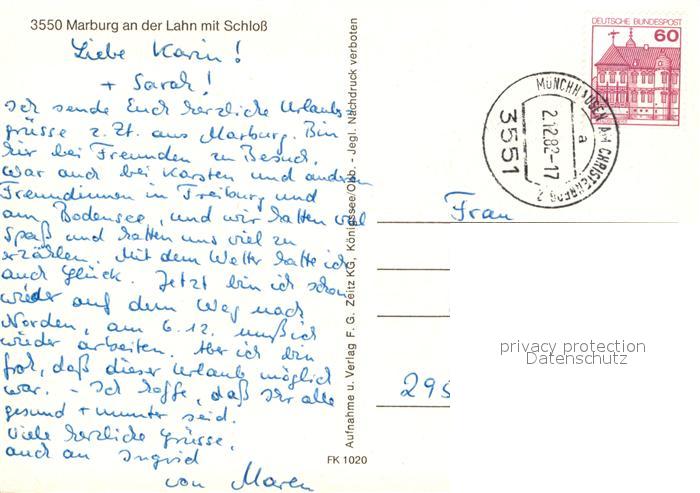 3550 Marburg an der Lahn mit Schloß
Liebe Karin!
+ Sarah!
Ich sende Euch herzliche Urlaubs-
grüsse z. Zt. aus Marburg. Bin
hier bei Freunden zu Besuch,
war auch bei Karsten und anderen
Freundinnen in Freiburg und
am Bodensee, und wir hatten viel
Spaß und hatten uns viel zu
erzählen. Mit dem Wetter hatte ich
auch Glück. Jetzt bin ich schon
wieder auf dem Weg nach
Norden, am 6.12. muß ich
wieder arbeiten. Aber ich bin
froh, daß dieser Urlaub möglich
war. - Ich hoffe, daß Ihr alle
gesund + munter seid.
Viele herzliche Grüsse,
auch an Ingrid
von Maren
Aufnahme u. Verlag F. G. Zeitz KG, Königssee/Obb. - Jegl. Nachdruck verboten
FK 1020
DEUTSCHE BUNDESPOST
60
MÜNCHHAUSEN AM CHRISTENBERG 2
a
2.12.82-17
3551
Frau
295
privacy protection
Datenschutz